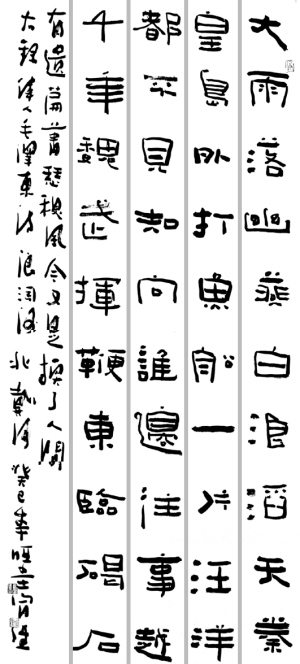 大雨落幽燕白浪滔天秦
皇島外打魚船一片汪洋
都不見知向誰邊往事越
千年魏武揮鞭東臨碣石
有遺篇蕭瑟秋風今又是換了人間
錄偉人毛澤東詩浪淘沙北戴河癸巳